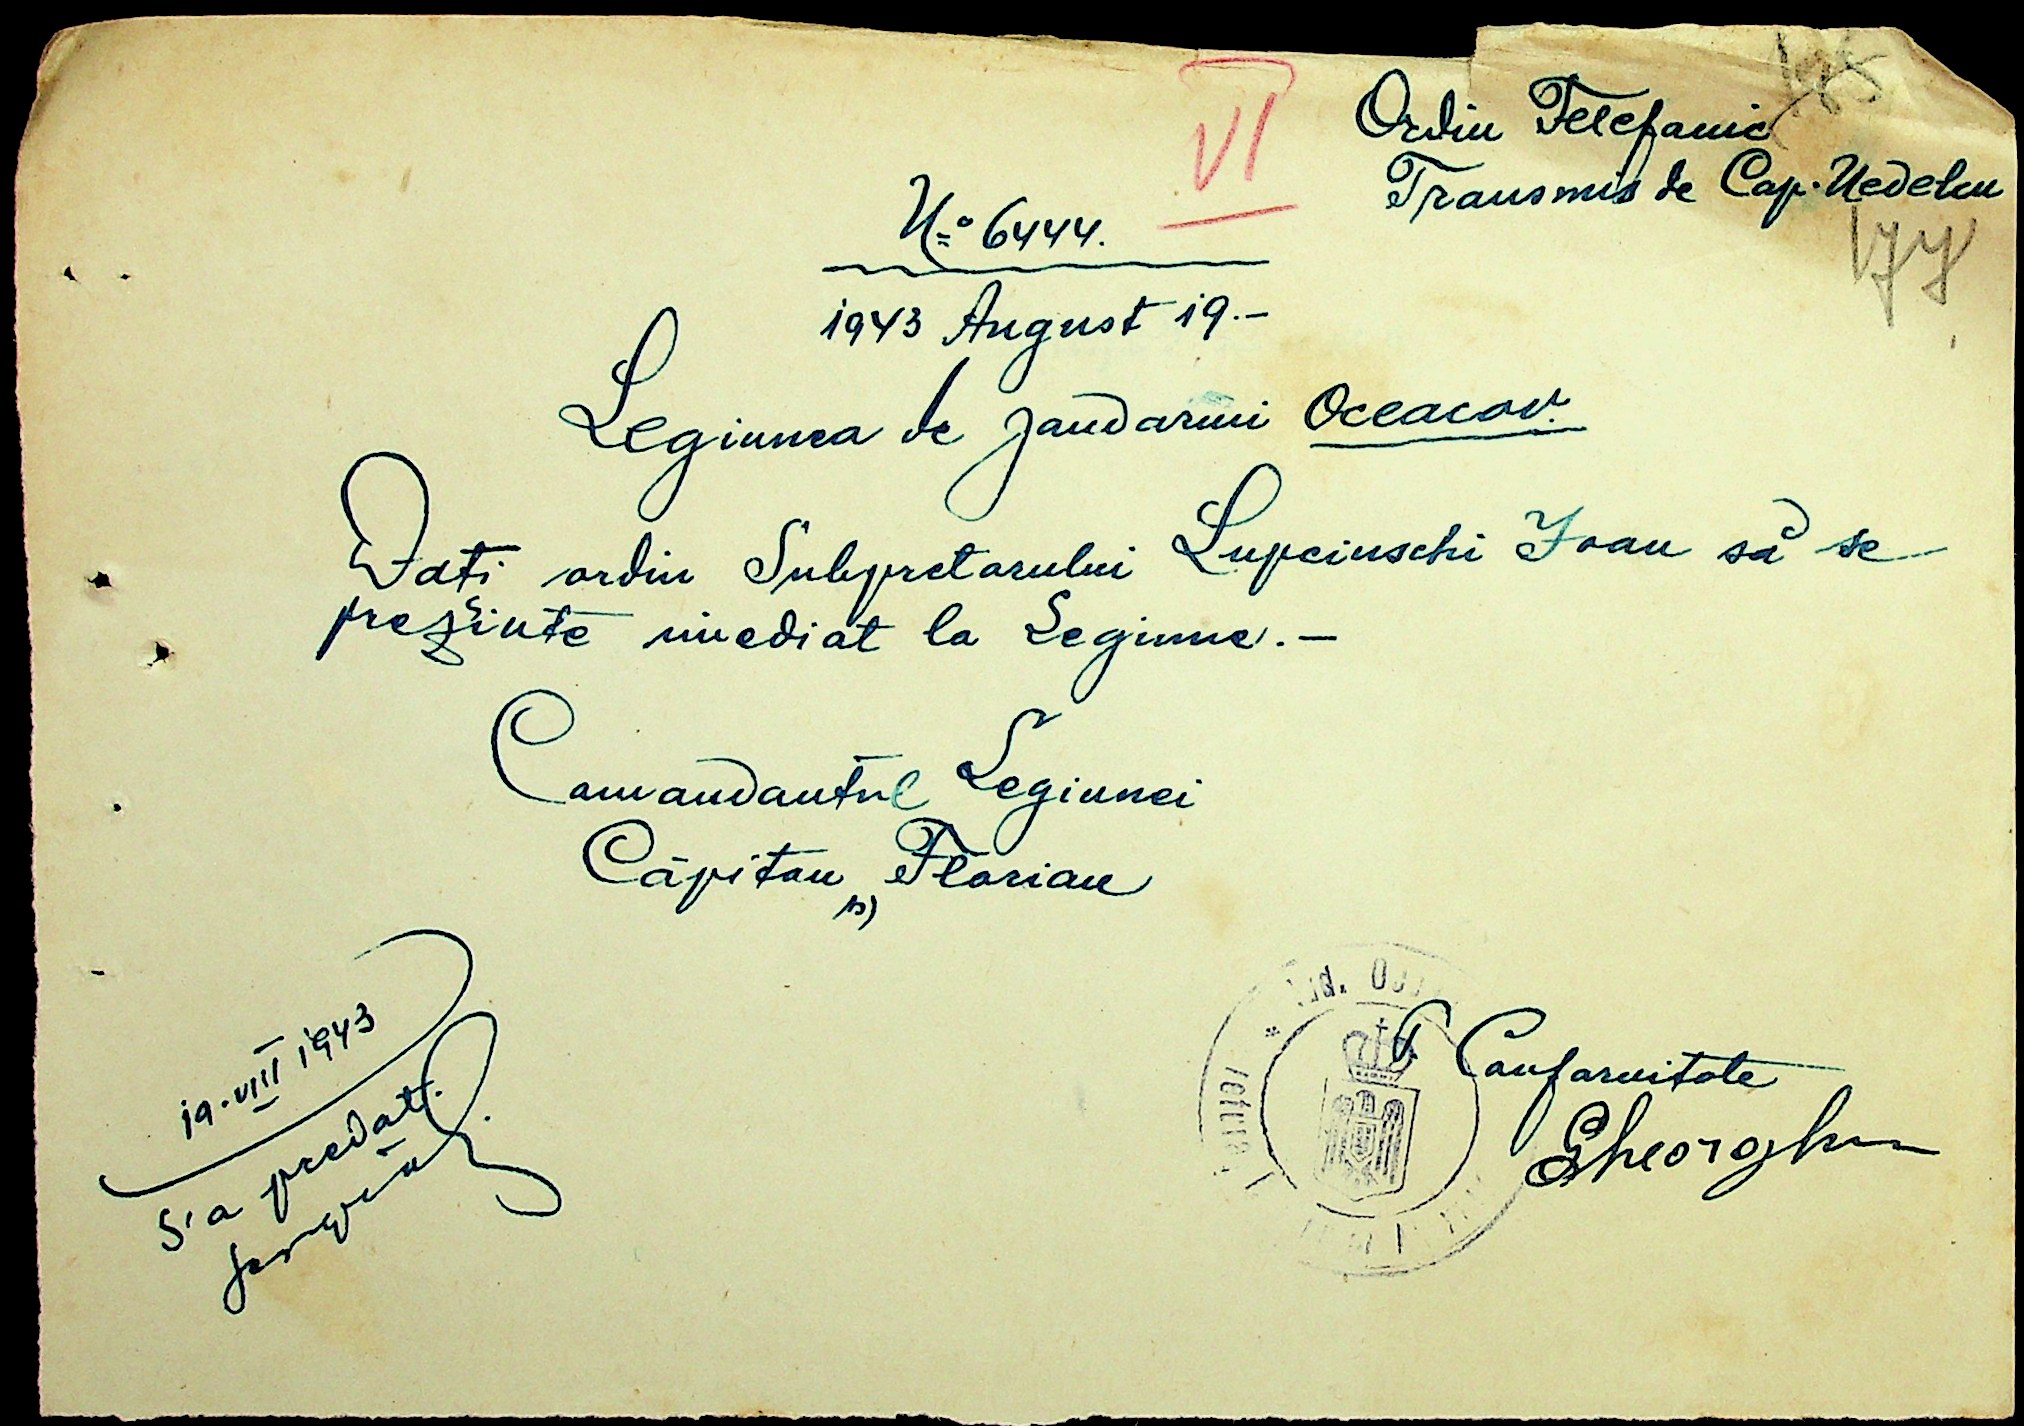 VI
Ordin Telefonic
Transmis de Cap. Nedelcu
177
No 6444.
1943 August 19.–
Legiunea de Jandarmi Oceacov.
Dați ordin Subpretorului Lupcinschi Ioan să se
prezinte imediat la Legiune.–
Comandantul Legiunei
Căpitan Florian
s)
19.VIII 1943
S'a predat
personal
Jud. Oce
Conformitate
Gheorghe